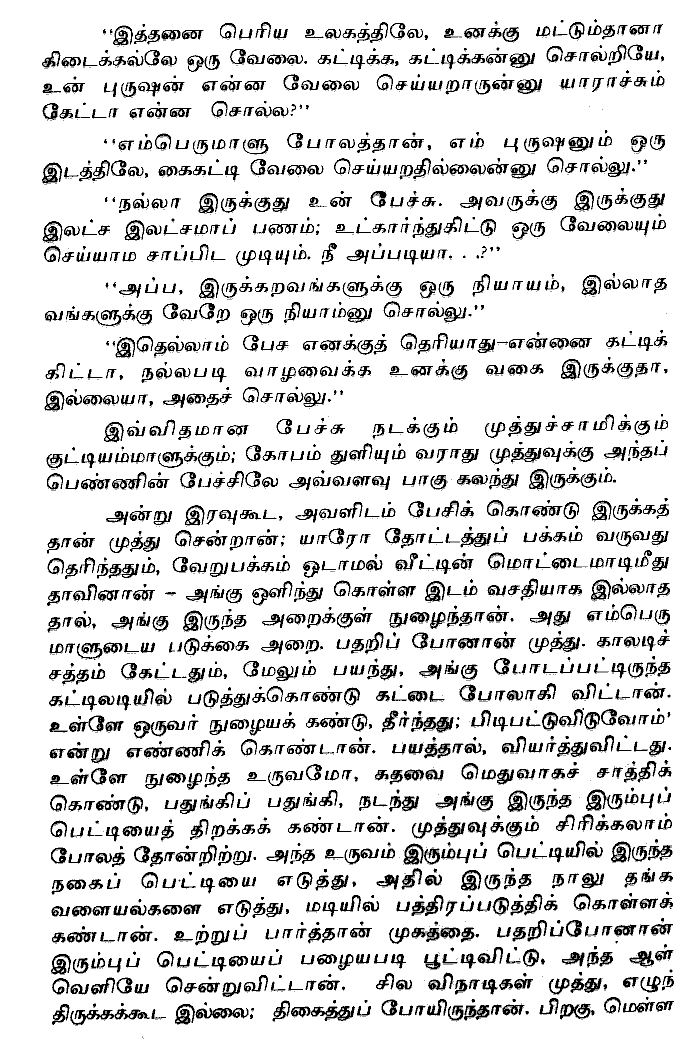 ‘‘இத்தனை பெரிய உலகத்திலே, உனக்கு மட்டும்தானா
கிடைக்கல்லே ஒரு வேலை. கட்டிக்க, கட்டிக்கன்னு சொல்றியே,
உன் புருஷன் என்ன வேலை செய்யறாருன்னு யாராச்சும்
கேட்டா என்ன சொல்ல?’’
‘‘எம்பெருமாளு போலத்தான், எம் புருஷனும் ஒரு
இடத்திலே, கைகட்டி வேலை செய்யறதில்லைன்னு சொல்லு.’’
‘‘நல்லா இருக்குது உன் பேச்சு. அவருக்கு இருக்குது
இலட்ச இலட்சமாப் பணம்; உட்கார்ந்துகிட்டு ஒரு வேலையும்
செய்யாம சாப்பிட முடியும். நீ அப்படியா. . .?’’
‘‘அப்ப, இருக்கறவங்களுக்கு ஒரு நியாயம், இல்லாத
வங்களுக்கு வேறே ஒரு நியாம்னு சொல்லு.’’
‘‘இதெல்லாம் பேச எனக்குத் தெரியாது–என்னை கட்டிக்
கிட்டா, நல்லபடி வாழவைக்க உனக்கு வகை இருக்குதா,
இல்லையா, அதைச் சொல்லு.’’
இவ்விதமான பேச்சு நடக்கும் முத்துச்சாமிக்கும்
குட்டியம்மாளுக்கும்; கோபம் துளியும் வராது முத்துவுக்கு அந்தப்
பெண்ணின் பேச்சிலே அவ்வளவு பாகு கலந்து இருக்கும்.
அன்று இரவுகூட, அவளிடம் பேசிக் கொண்டு இருக்கத்
தான் முத்து சென்றான்; யாரோ தோட்டத்துப் பக்கம் வருவது
தெரிந்ததும், வேறுபக்கம் ஒடாமல் வீட்டின் மொட்டைமாடிமீது
தாவினான் – அங்கு ஒளிந்து கொள்ள இடம் வசதியாக இல்லாத
தால், அங்கு இருந்த அறைக்குள் நுழைந்தான். அது எம்பெரு
மாளுடைய படுக்கை அறை. பதறிப் போனான் முத்து. காலடிச்
சத்தம் கேட்டதும், மேலும் பயந்து, அங்கு போடப்பட்டிருந்த
கட்டிலடியில் படுத்துக்கொண்டு கட்டை போலாகி விட்டான்.
உள்ளே ஒருவர் நுழையக் கண்டு, தீர்ந்தது; பிடிபட்டுவிடுவோம்’
என்று எண்ணிக் கொண்டான். பயத்தால், வியர்த்துவிட்டது.
உள்ளே நுழைந்த உருவமோ, கதவை மெதுவாகச் சாத்திக்
கொண்டு, பதுங்கிப் பதுங்கி, நடந்து அங்கு இருந்த இரும்புப்
பெட்டியைத் திறக்கக் கண்டான். முத்துவுக்கும் சிரிக்கலாம்
போலத் தோன்றிற்று. அந்த உருவம் இரும்புப் பெட்டியில் இருந்த
நகைப் பெட்டியை எடுத்து, அதில் இருந்த நாலு தங்க
வளையல்களை எடுத்து, மடியில் பத்திரப்படுத்திக் கொள்ளக்
கண்டான். உற்றுப் பார்த்தான் முகத்தை. பதறிப்போனான்
இரும்புப் பெட்டியைப் பழையபடி பூட்டிவிட்டு, அந்த ஆள்
வெளியே சென்றுவிட்டான். சில விநாடிகள் முத்து, எழுந்
திருக்கக்கூட இல்லை; திகைத்துப் போயிருந்தான். பிறகு, மெள்ள